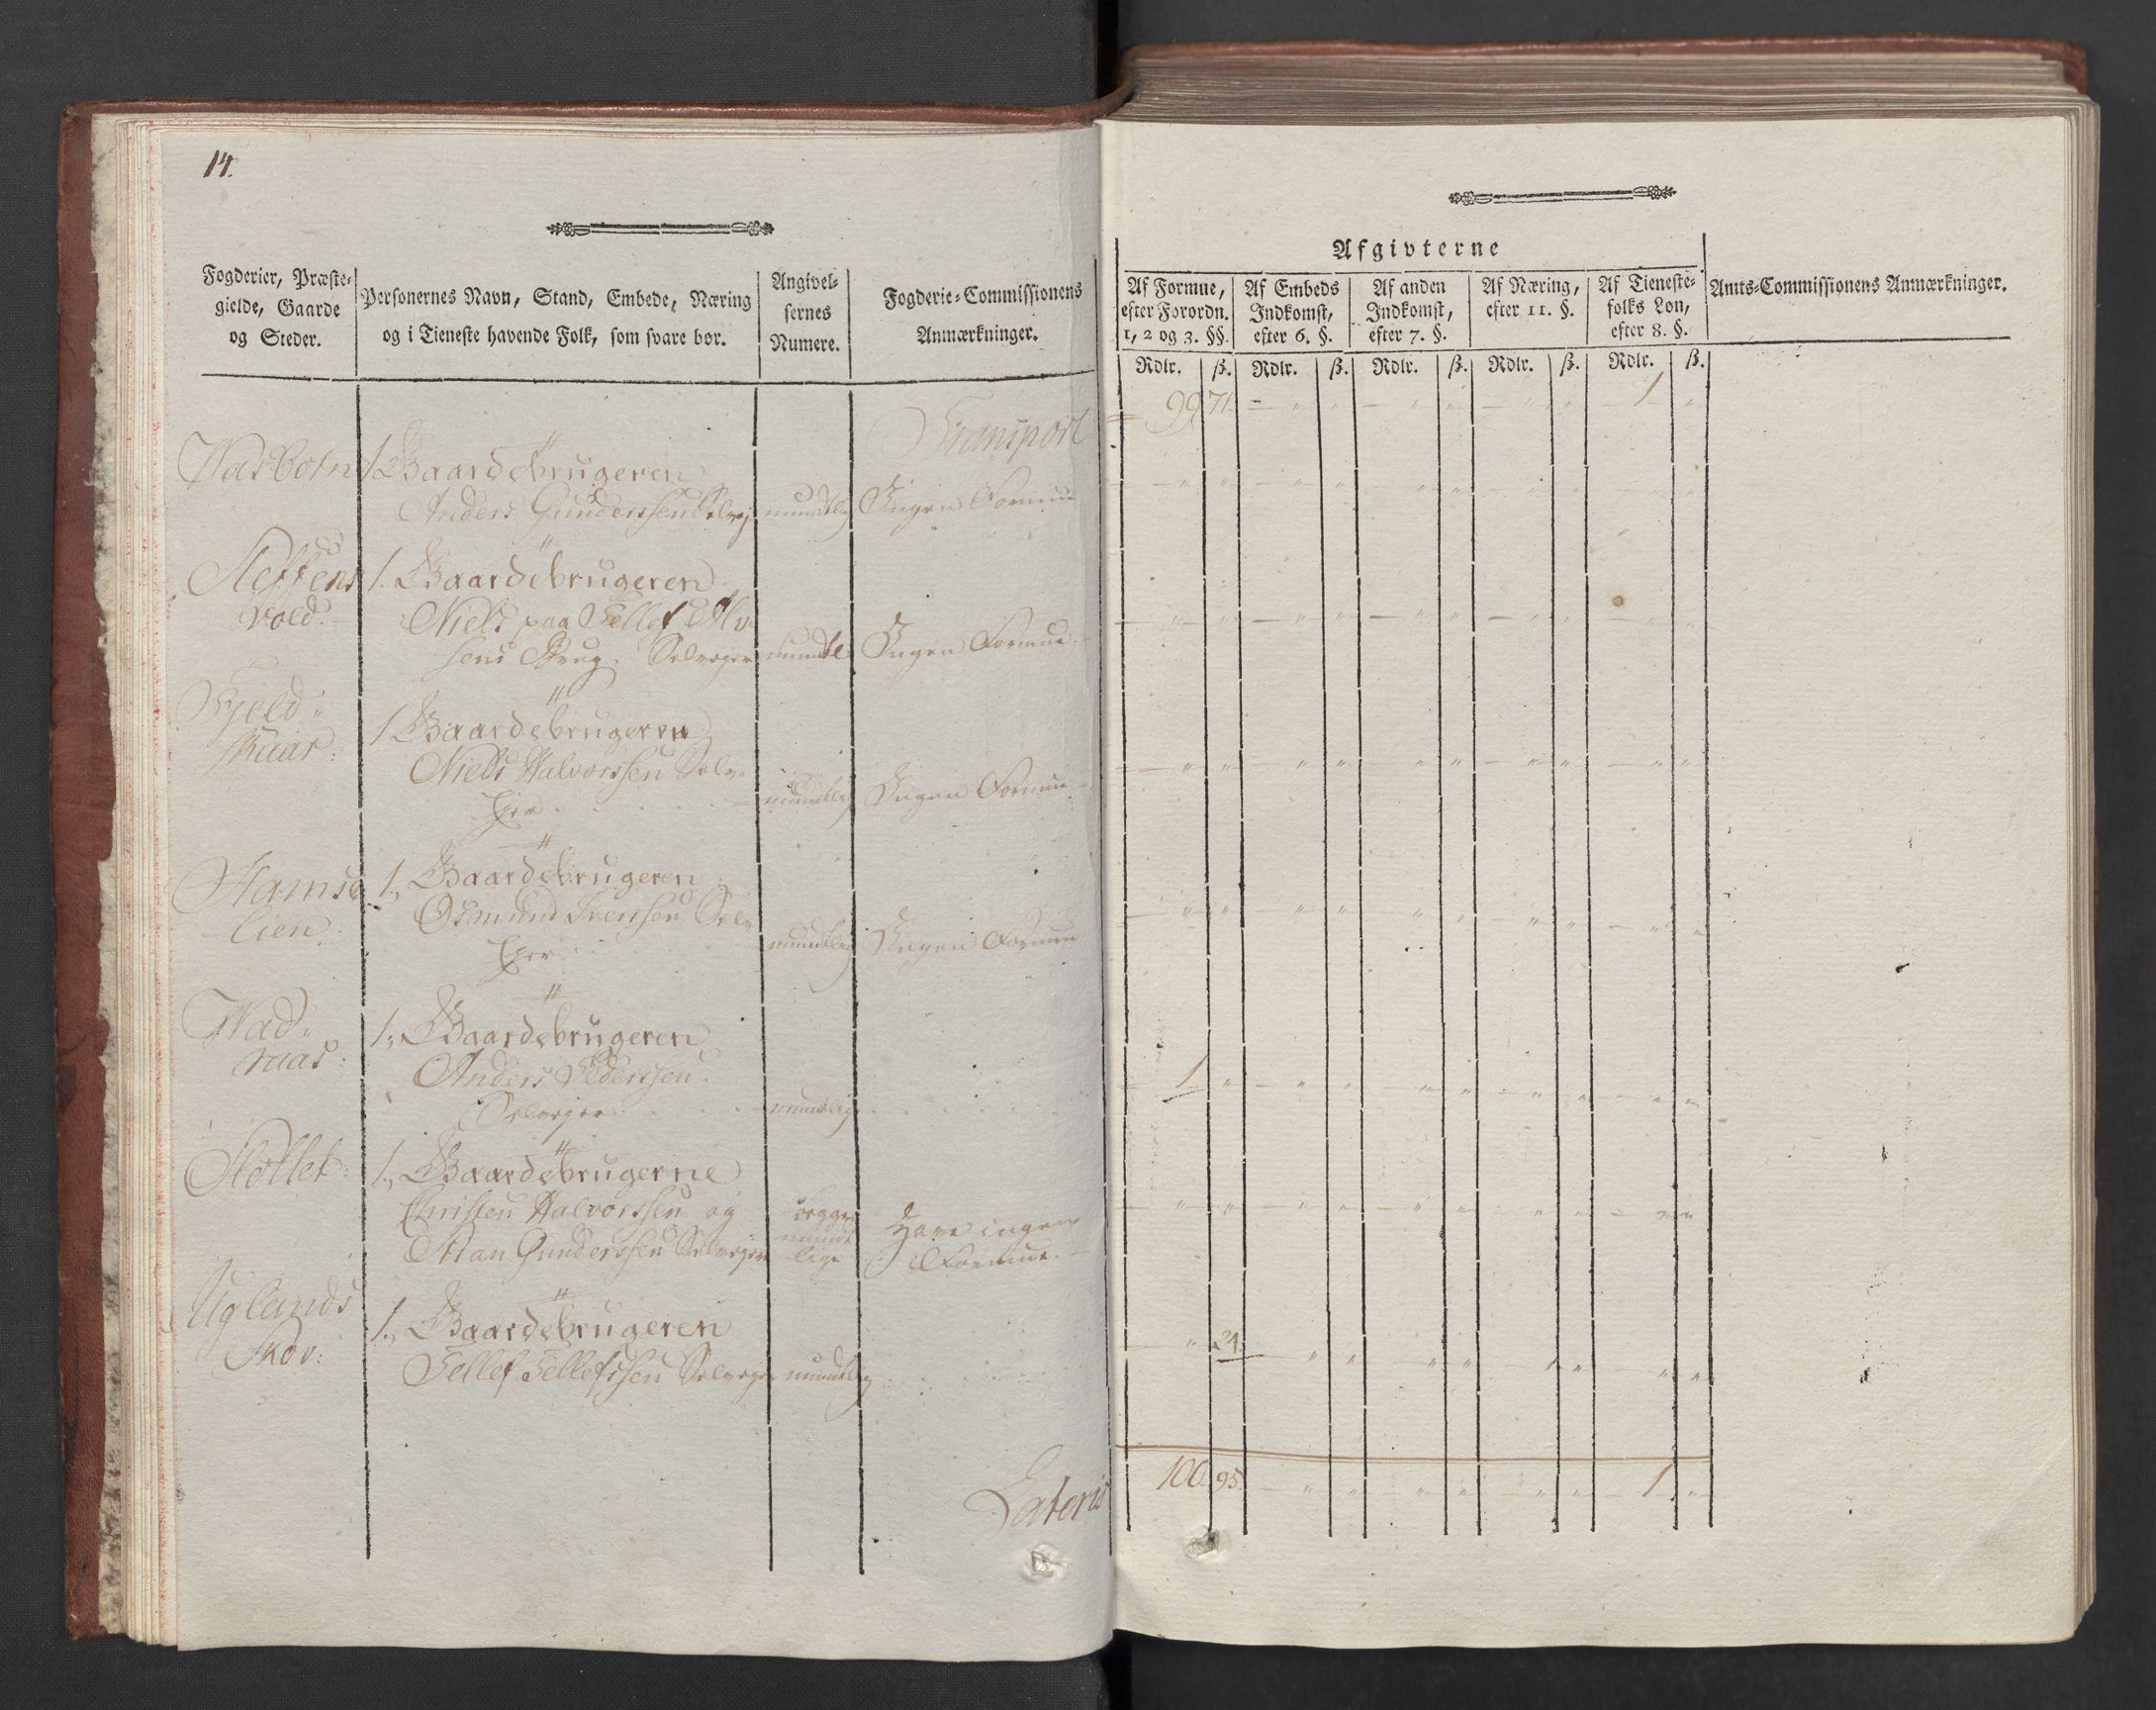 14.
Fogderier, Præste-
gielde, Gaarde
og Steder.
Personernes Navn, Stand, Embede, Næring
og i Tieneste havende Folk, som svare bør.
Angivel-
sernes
Numere.
Fogderie-Commissionens
Anmærkninger.
Transport
1 Gaardebrugeren
Anders Gunderssen Selvej mundtlig Ingen Formue
1. Gaardebrugeren
vold.
Niels paa Tellef
sens Brug. Selveger mundtl Ingen Formue
Fjeld-
skaar:
1 Gaardebrugeren
Niels Halvorssen Selv-
Ejer mundtlig Ingen Formue
lien.
1., Gaardebrugeren
Osmund Svenssen Selv-
Ejer mundtlig Ingen Formue
Wad-
raas:
1., Gaardebrugeren
Anders Pederssen
Selvejer mundtlig
Slottet:
1., Gaardebrugerne
Christen Halvorssen og
Gunderssen Selvejer
begge
mundt
lige
Have ingen
Formue.
Uglands
Skov:
1., Gaardebrugeren
Tellef Tellefssen Selveger mundtlig
Lateris
Afgivterne
Af Formue,
efter Forordn.
1, 2 og 3. §§.
Af Embeds
Indkomst,
efter 6. §.
Af anden
Indkomst,
efter 7. §.
Af Næring,
efter 11. §.
Af Tieneste-
folks Løn,
efter 8. §.
Amts-Commissionens Anmærkninger.
Rdlr. ß. Rdlr. ß. Rdlr. ß. Rdlr. ß. Rdlr. ß.
99 71 1
1
24
100 95 1